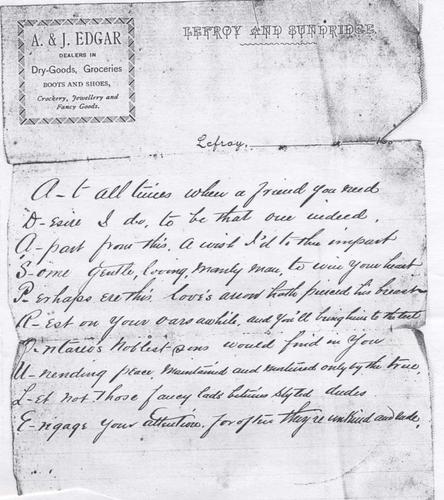 A. & J. EDGAR
DEALERS IN
Dry-Goods, Groceries
BOOTS AND SHOES,
Crockery, Jewellery and
Fancy Goods.
LEFROY AND SUNDRIDGE.
Lefroy,
A-t all times when a friend you need
D-esire I do, to be that one indeed.
A-part from this, a wish I'd to thee impart
S-ome gentle, loving, manly man, to win your heart
P-erhaps ere this love's arrow hath pierced his breast
R-est on your oars awhile, and you'll bring him to the test
O-ntario's Noblest sons would find in you
U-nending peace, maintained and nurtured only by the true
L-et not those fancy lads betimes styled dudes
E-ngage your attention, for often they're unkind and